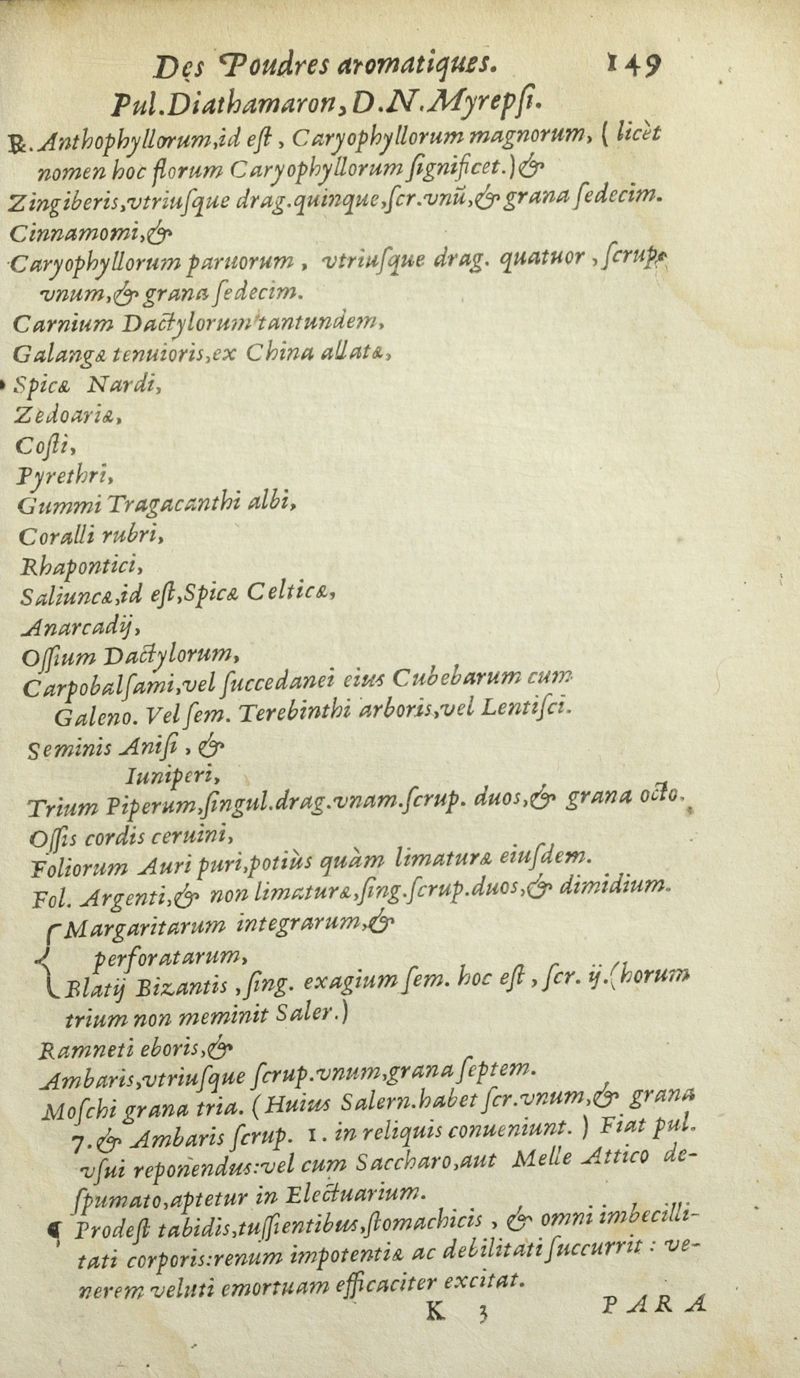 Des Poudres aromatiques. 149
Pul.Diathamaron, D.N.Myrepſi.
℞. Anthophyllorum,id eſt, Caryophyllorum magnorum, ( licèt
nomen hoc florum Caryophyllorum ſignificet.) &
Zingiberis,vtriuſque drag.quinque,ſcr.vnũ,& grana ſedecim.
Cinnamomi,&
Caryophyllorum paruorum, vtriuſque drag. quatuor, ſcrup.
vnum,& grana ſedecim.
Carnium Dactylorum tantundem,
Galangæ tenuioris,ex China allatæ,
Spicæ Nardi,
Zedoariæ,
Coſti,
Pyrethri,
Gummi Tragacanthi albi,
Coralli rubri,
Rhapontici,
Saliuncæ,id eſt,Spicæ Celticæ,
Anarcadij,
Oſſium Dactylorum,
Carpobalſami,vel ſuccedanei eius Cubebarum cum
Galeno. Vel ſem. Terebinthi arboris,vel Lentiſci.
Seminis Aniſi, &
Iuniperi,
Trium Piperum,ſingul.drag.vnam.ſcrup. duos,& grana octo.
Oſſis cordis ceruini,
Foliorum Auri puri,potiùs quàm limaturæ eiuſdem.
Fol. Argenti,& non limaturæ,ſing.ſcrup.duos,& dimidium.
Margaritarum integrarum,&
perforatarum,
Blatij Bizantis, ſing. exagium ſem. hoc eſt, ſcr. ij.(horum
trium non meminit Saler.)
Ramneti eboris,&
Ambaris,vtriuſque ſcrup.vnum,grana ſeptem.
Moſchi grana tria. (Huius Salern.habet ſcr.vnum,& grana
7.& Ambaris ſcrup. 1. in reliquis conueniunt.) Fiat pul.
vſui reponendus:vel cum Saccharo,aut Melle Attico de-
ſpumato,aptetur in Electuarium.
¶ Prodeſt tabidis,tuſſientibus,ſtomachicis, & omni imbecilli-
tati corporis:renum impotentiæ ac debilitati ſuccurrit: ve-
nerem veluti emortuam efficaciter excitat.
K 3 PARA